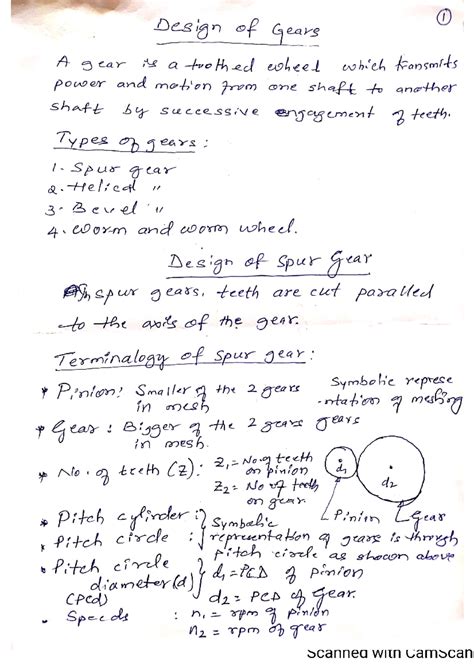 ①
Design of Gears
A gear is a toothed wheel which transmits
power and motion from one shaft to another
shaft by successive engagement of teeth.
Types of gears :
1. Spur gear
2. Helical "
3. Bevel "
4. Worm and worm wheel.
Design of Spur Gear
In spur gears, teeth are cut paralled
to the axis of the gear.
Terminalogy of Spur gear :
* Pinion : Smaller of the 2 gears
in mesh
* Gear : Bigger of the 2 gears
in mesh.
Symbolic represe
-ntation of meshing
gears
* No. of teeth (Z) : Z₁ = No. of teeth
on pinion
Z₂ = No of teeth
on gear.
d₁
d₂
Pinion
Gear
* Pitch cylinder : } Symbolic
* Pitch circle : } representation of gears is through
pitch circle as shown above
* Pitch circle
diameter (d)
(PCd)
} d₁ = PCD of pinion
d₂ = PCD of Gear.
* Speeds : n₁ = rpm of pinion
n₂ = rpm of gear
Scanned with CamScan